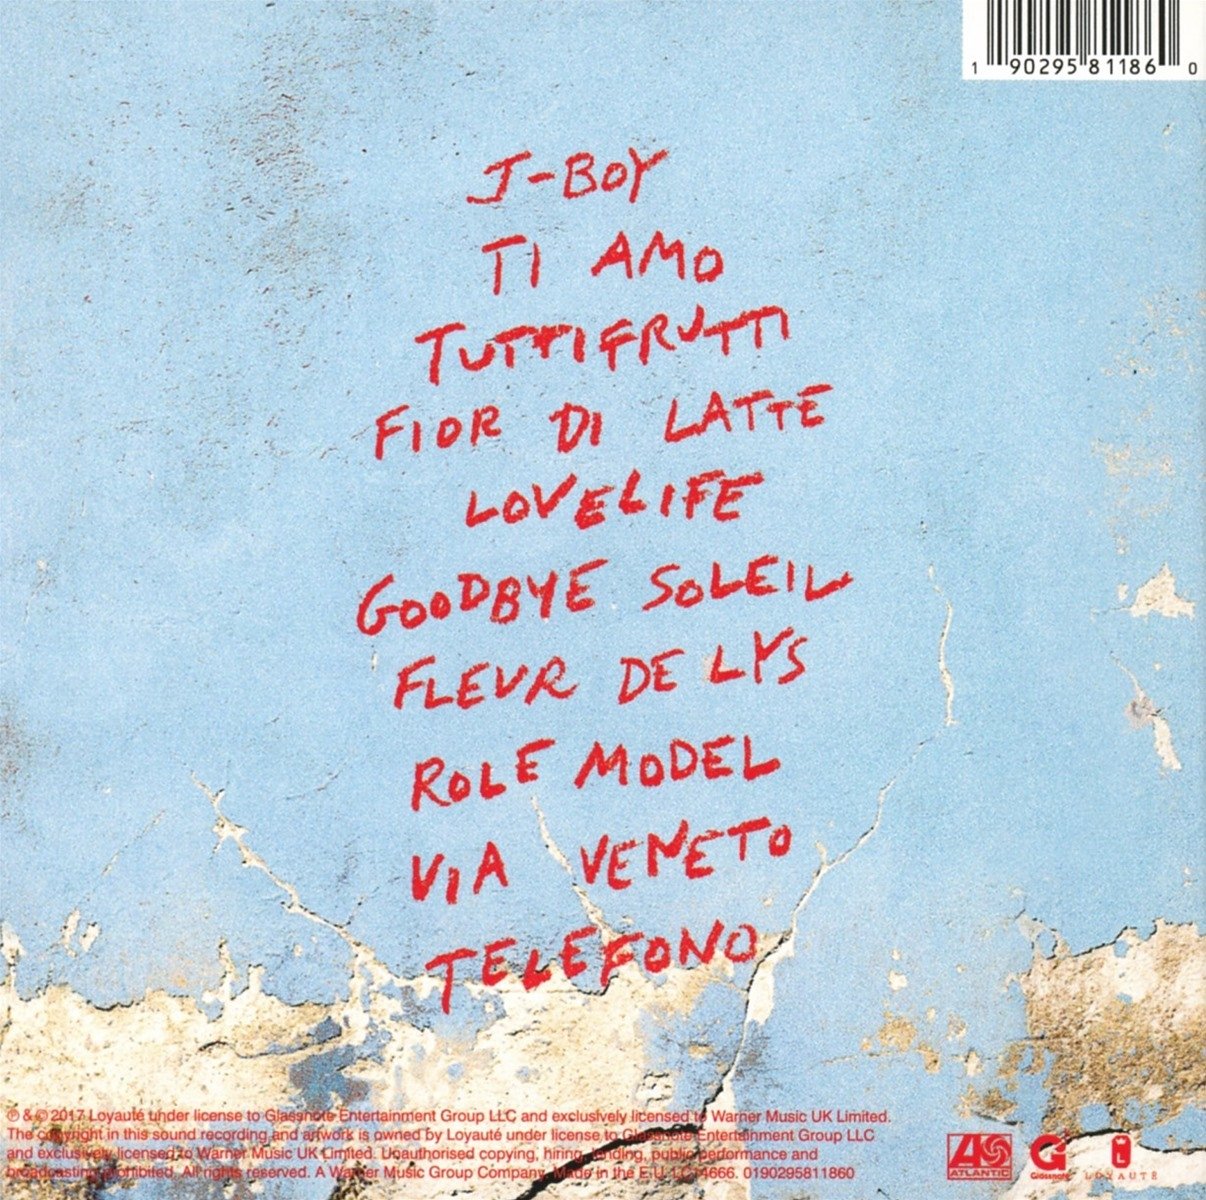 1 90295 81186 0
J-BOY
TI AMO
TUTTIFRUTTI
FIOR DI LATTE
LOVELIFE
GOODBYE SOLEIL
FLEUR DE LYS
ROLE MODEL
VIA VENETO
TELEFONO
℗ & © 2017 Loyauté under license to Glassnote Entertainment Group LLC and exclusively licensed to Warner Music UK Limited.
The copyright in this sound recording and artwork is owned by Loyauté under license to Glassnote Entertainment Group LLC
and exclusively licensed to Warner Music UK Limited. Unauthorised copying, hiring, lending, public performance and
broadcasting prohibited. All rights reserved. A Warner Music Group Company. Made in the E.U. LC 14666. 0190295811860
ATLANTIC Glassnote LOYAUTÉ